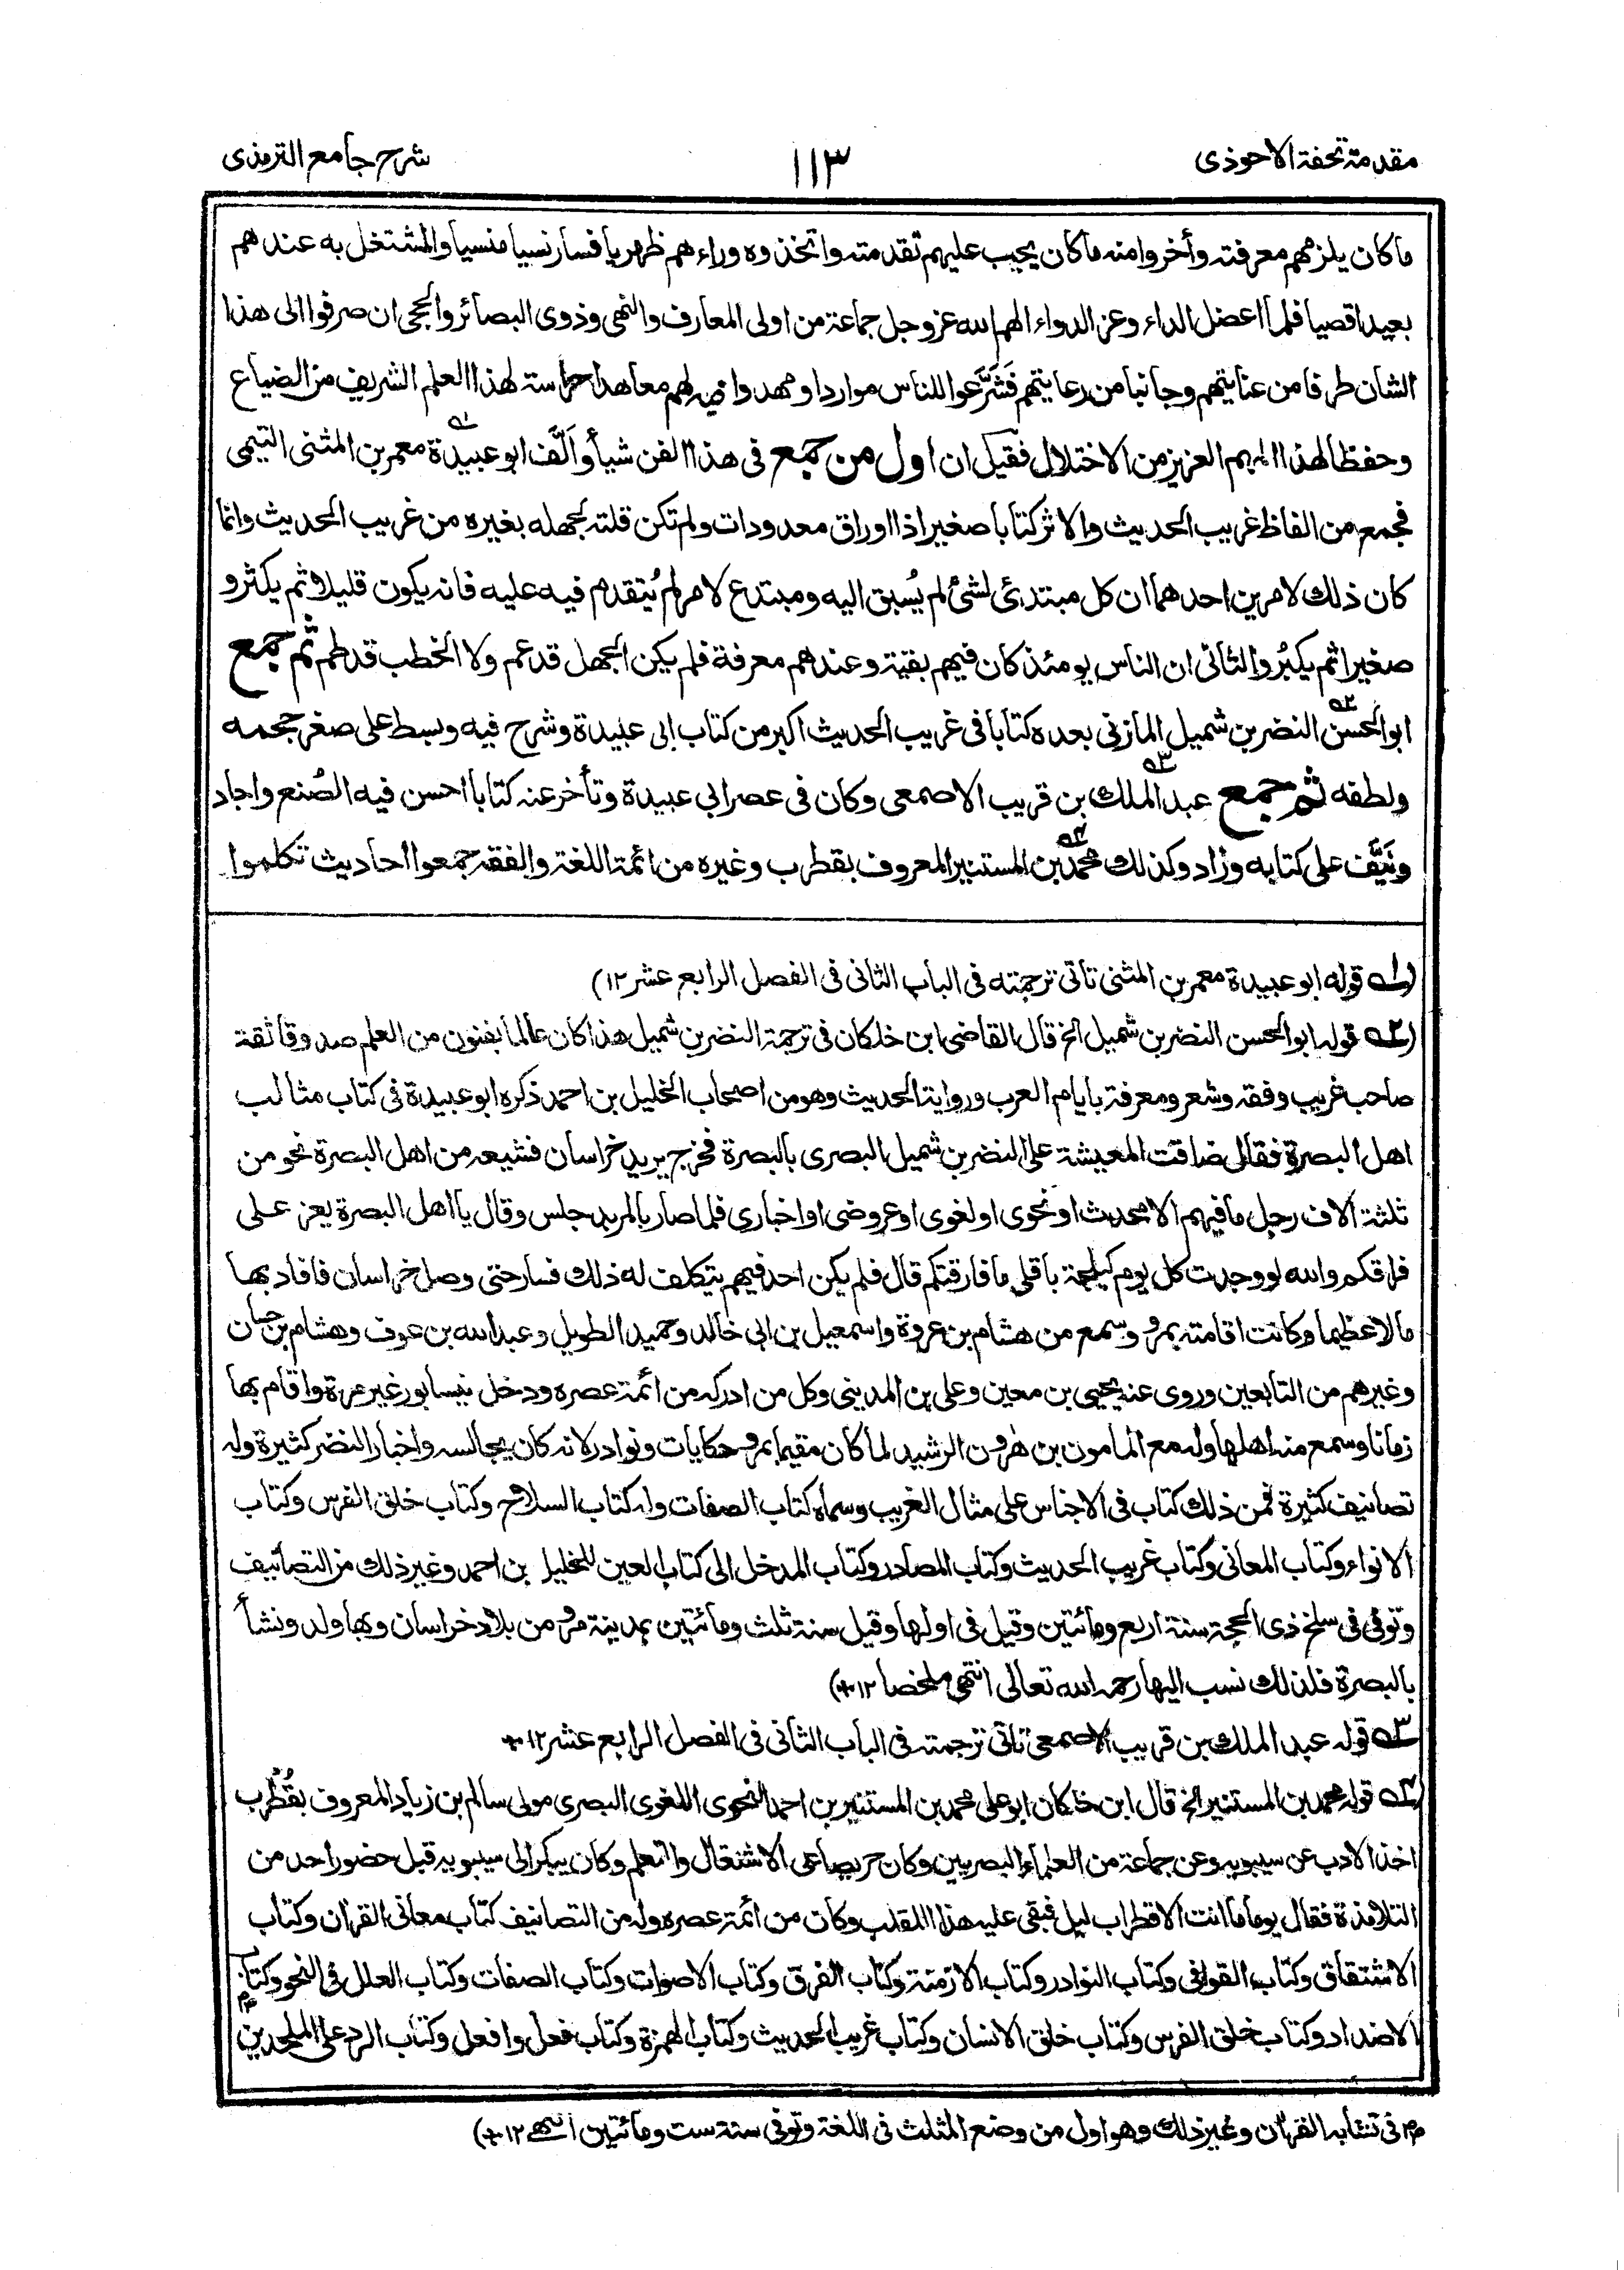 مقدمة تحفة الاحوذى
١١٣
شرح جامع الترمذى
ما كان يلزمهم معرفته وأخروا منه ما كان يجب عليهم تقدمته واتخذوه وراءهم ظهريا فسار نسيا منسيا والمشتغل به عندهم
بعيدا قصيا فلما اعضل الداء وعز الدواء الهم الله عز وجل جماعة من اولى المعارف والنهى وذوى البصائر والحجى ان صرفوا الى هذا
الشان طرفا من عنايتهم وجانبا من رعايتهم فَشَرَّعوا للناس مواردا ومهدوا فيه لهم معاهدا حراسة لهذا العلم الشريف من الضياع
وحفظا لهذا المهم العزيز من الاختلال فقيل ان اول من جمع فى هذا الفن شيأ وأَلَّف ابو عبيدة ١ه معمر بن المثنى التيمى
فجمع من الفاظ غريب الحديث والاثر كتابا صغيرا ذا اوراق معدودات ولم تكن قلته لجهله بغيره من غريب الحديث وانما
كان ذلك لامرين احدهما ان كل مبتدئ لشئ لم يُسبق اليه ومبتدع لامر لم يُتقدم فيه عليه فانه يكون قليلا ثم يكثر و
صغيرا ثم يكبُر والثانى ان الناس يومئذ كان فيهم بقية وعندهم معرفة فلم يكن الجهل قد عم ولا الخطب قد طم ثم جمع
ابو الحسن ٢ه النضر بن شميل المازنى بعده كتابا فى غريب الحديث اكبر من كتاب ابى عبيدة وشرح فيه وبسط على صغر حجمه
ولطفه ثم جمع عبد الملك ٣ه بن قريب الاصمعى وكان فى عصر ابى عبيدة وتأخر عنه كتابا احسن فيه الصُنع واجاد
ونَيَّف على كتابه وزاد وكذلك محمد ٤ه بن المستنير المعروف بقطرب وغيره من ائمة اللغة والفقه جمعوا احاديث تكلموا
(١ه قوله ابو عبيدة معمر بن المثنى تاتى ترجمته فى الباب الثانى فى الفصل الرابع عشر ١٢)
(٢ه قوله ابو الحسن النضر بن شميل الخ قال القاضى ابن خلكان فى ترجمة النضر بن شميل هذا كان عالما بفنون من العلم صدوقا ثقة
صاحب غريب وفقه وشعر ومعرفة بايام العرب ورواية الحديث وهو من اصحاب الخليل بن احمد ذكره ابو عبيدة فى كتاب مثالب
اهل البصرة فقال ضاقت المعيشة على النضر بن شميل البصرى بالبصرة فخرج يريد خراسان فشيعه من اهل البصرة نحو من
ثلثة الاف رجل ما فيهم الا محدث او نحوى او لغوى او عروضى او اخبارى فلما صار بالمربد جلس وقال يا اهل البصرة يعز على
فراقكم والله لو وجدت كل يوم كيلجة باقلى ما فارقتكم قال فلم يكن احد فيهم يتكلف له ذلك فسار حتى وصل خراسان فافاد بها
مالا عظيما وكانت اقامته بمرو وسمع من هشام بن عروة واسمعيل بن ابى خالد وحميد الطويل وعبد الله بن عوف وهشام بن حسان
وغيرهم من التابعين وروى عنه يحيى بن معين وعلى بن المدينى وكل من ادركه من ائمة عصره ودخل نيسابور غير مرة واقام بها
زمانا وسمع منه اهلها وله مع المامون بن هرون الرشيد لما كان مقيما بمرو حكايات ونوادر لانه كان يجالسه واخبار النضر كثيرة وله
تصانيف كثيرة فمن ذلك كتاب فى الاجناس على مثال الغريب وسماه كتاب الصفات وله كتاب السلاح وكتاب خلق الفرس وكتاب
الانواء وكتاب المعانى وكتاب غريب الحديث وكتاب المصادر وكتاب المدخل الى كتاب العين للخليل بن احمد وغير ذلك من التصانيف
وتوفى فى سلخ ذى الحجة سنة اربع ومائتين وقيل فى اولها وقيل سنة ثلث ومائتين بمدينة مرو من بلاد خراسان وبها ولد ونشأ
بالبصرة فلذلك نسب اليها رحمه الله تعالى انتهى ملخصا ١٢)
٣ه قوله عبد الملك بن قريب الاصمعى تاتى ترجمته فى الباب الثانى فى الفصل الرابع عشر ١٢
(٤ه قوله محمد بن المستنير الخ قال ابن خلكان ابو على محمد بن المستنير بن احمد النحوى اللغوى البصرى مولى سالم بن زياد المعروف بقُطْرُب
اخذ الادب عن سيبويه وعن جماعة من العلماء البصريين وكان حريصا على الاشتغال والتعلم وكان يبكر الى سيبويه قبل حضور احد من
التلامذة فقال يوما ما انت الا قطرب ليل فبقى عليه هذا اللقب وكان من ائمة عصره وله من التصانيف كتاب معانى القران وكتاب
الاشتقاق وكتاب القوافى وكتاب النوادر وكتاب الازمنة وكتاب الفرق وكتاب الاصوات وكتاب الصفات وكتاب العلل فى النحو وكتاب
الاضداد وكتاب خلق الفرس وكتاب خلق الانسان وكتاب غريب الحديث وكتاب الهمزة وكتاب فعل وافعل وكتاب الرد على الملحدين
فى تشابه القران وغير ذلك وهو اول من وضع المثلث فى اللغة وتوفى سنة ست ومائتين انتهى ١٢)